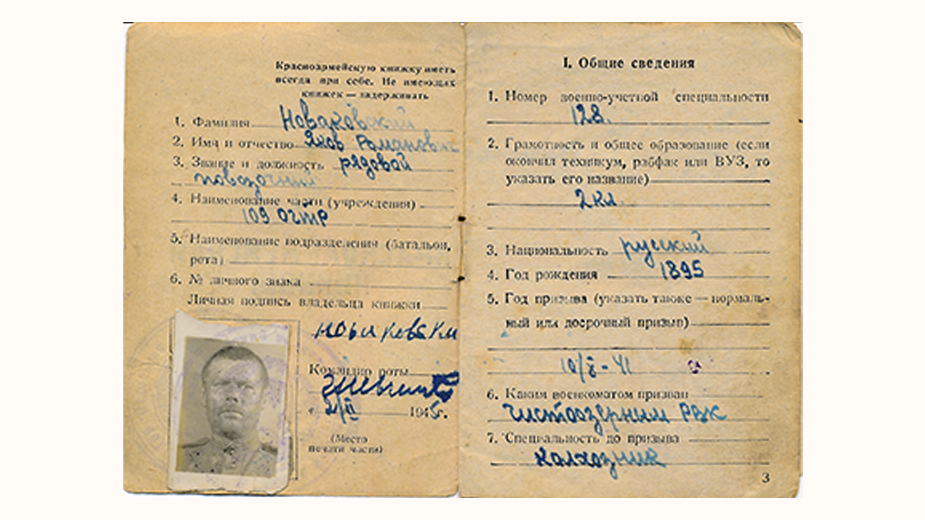 Красноармейскую книжку иметь
всегда при себе. Не имеющих
книжек — задерживать
1. Фамилия Новаковский
2. Имя и отчество Яков Романович
3. Звание и должность рядовой
повозочный
4. Наименование части (учреждения)
109
5. Наименование подразделения (батальон,
рота)
6. № личного знака
Личная подпись владельца книжки
Командир роты
194 г.
(Место
печати части)
I. Общие сведения
1. Номер военно-учетной специальности
128.
2. Грамотность и общее образование (если
окончил техникум, рабфак или ВУЗ, то
указать его название)
2 кл.
3. Национальность русский
4. Год рождения 1895
5. Год призыва (указать также — нормаль-
ный или досрочный призыв)
41
6. Каким военкоматом призван
Чистоозерним РВК
7. Специальность до призыва
колхозник
3